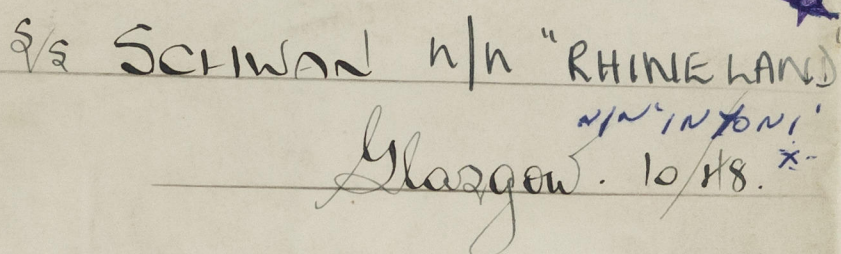 S/S SCHWAN n/n "RHINELAND"
N/N 'INYONI'
Glasgow. 10/48. x